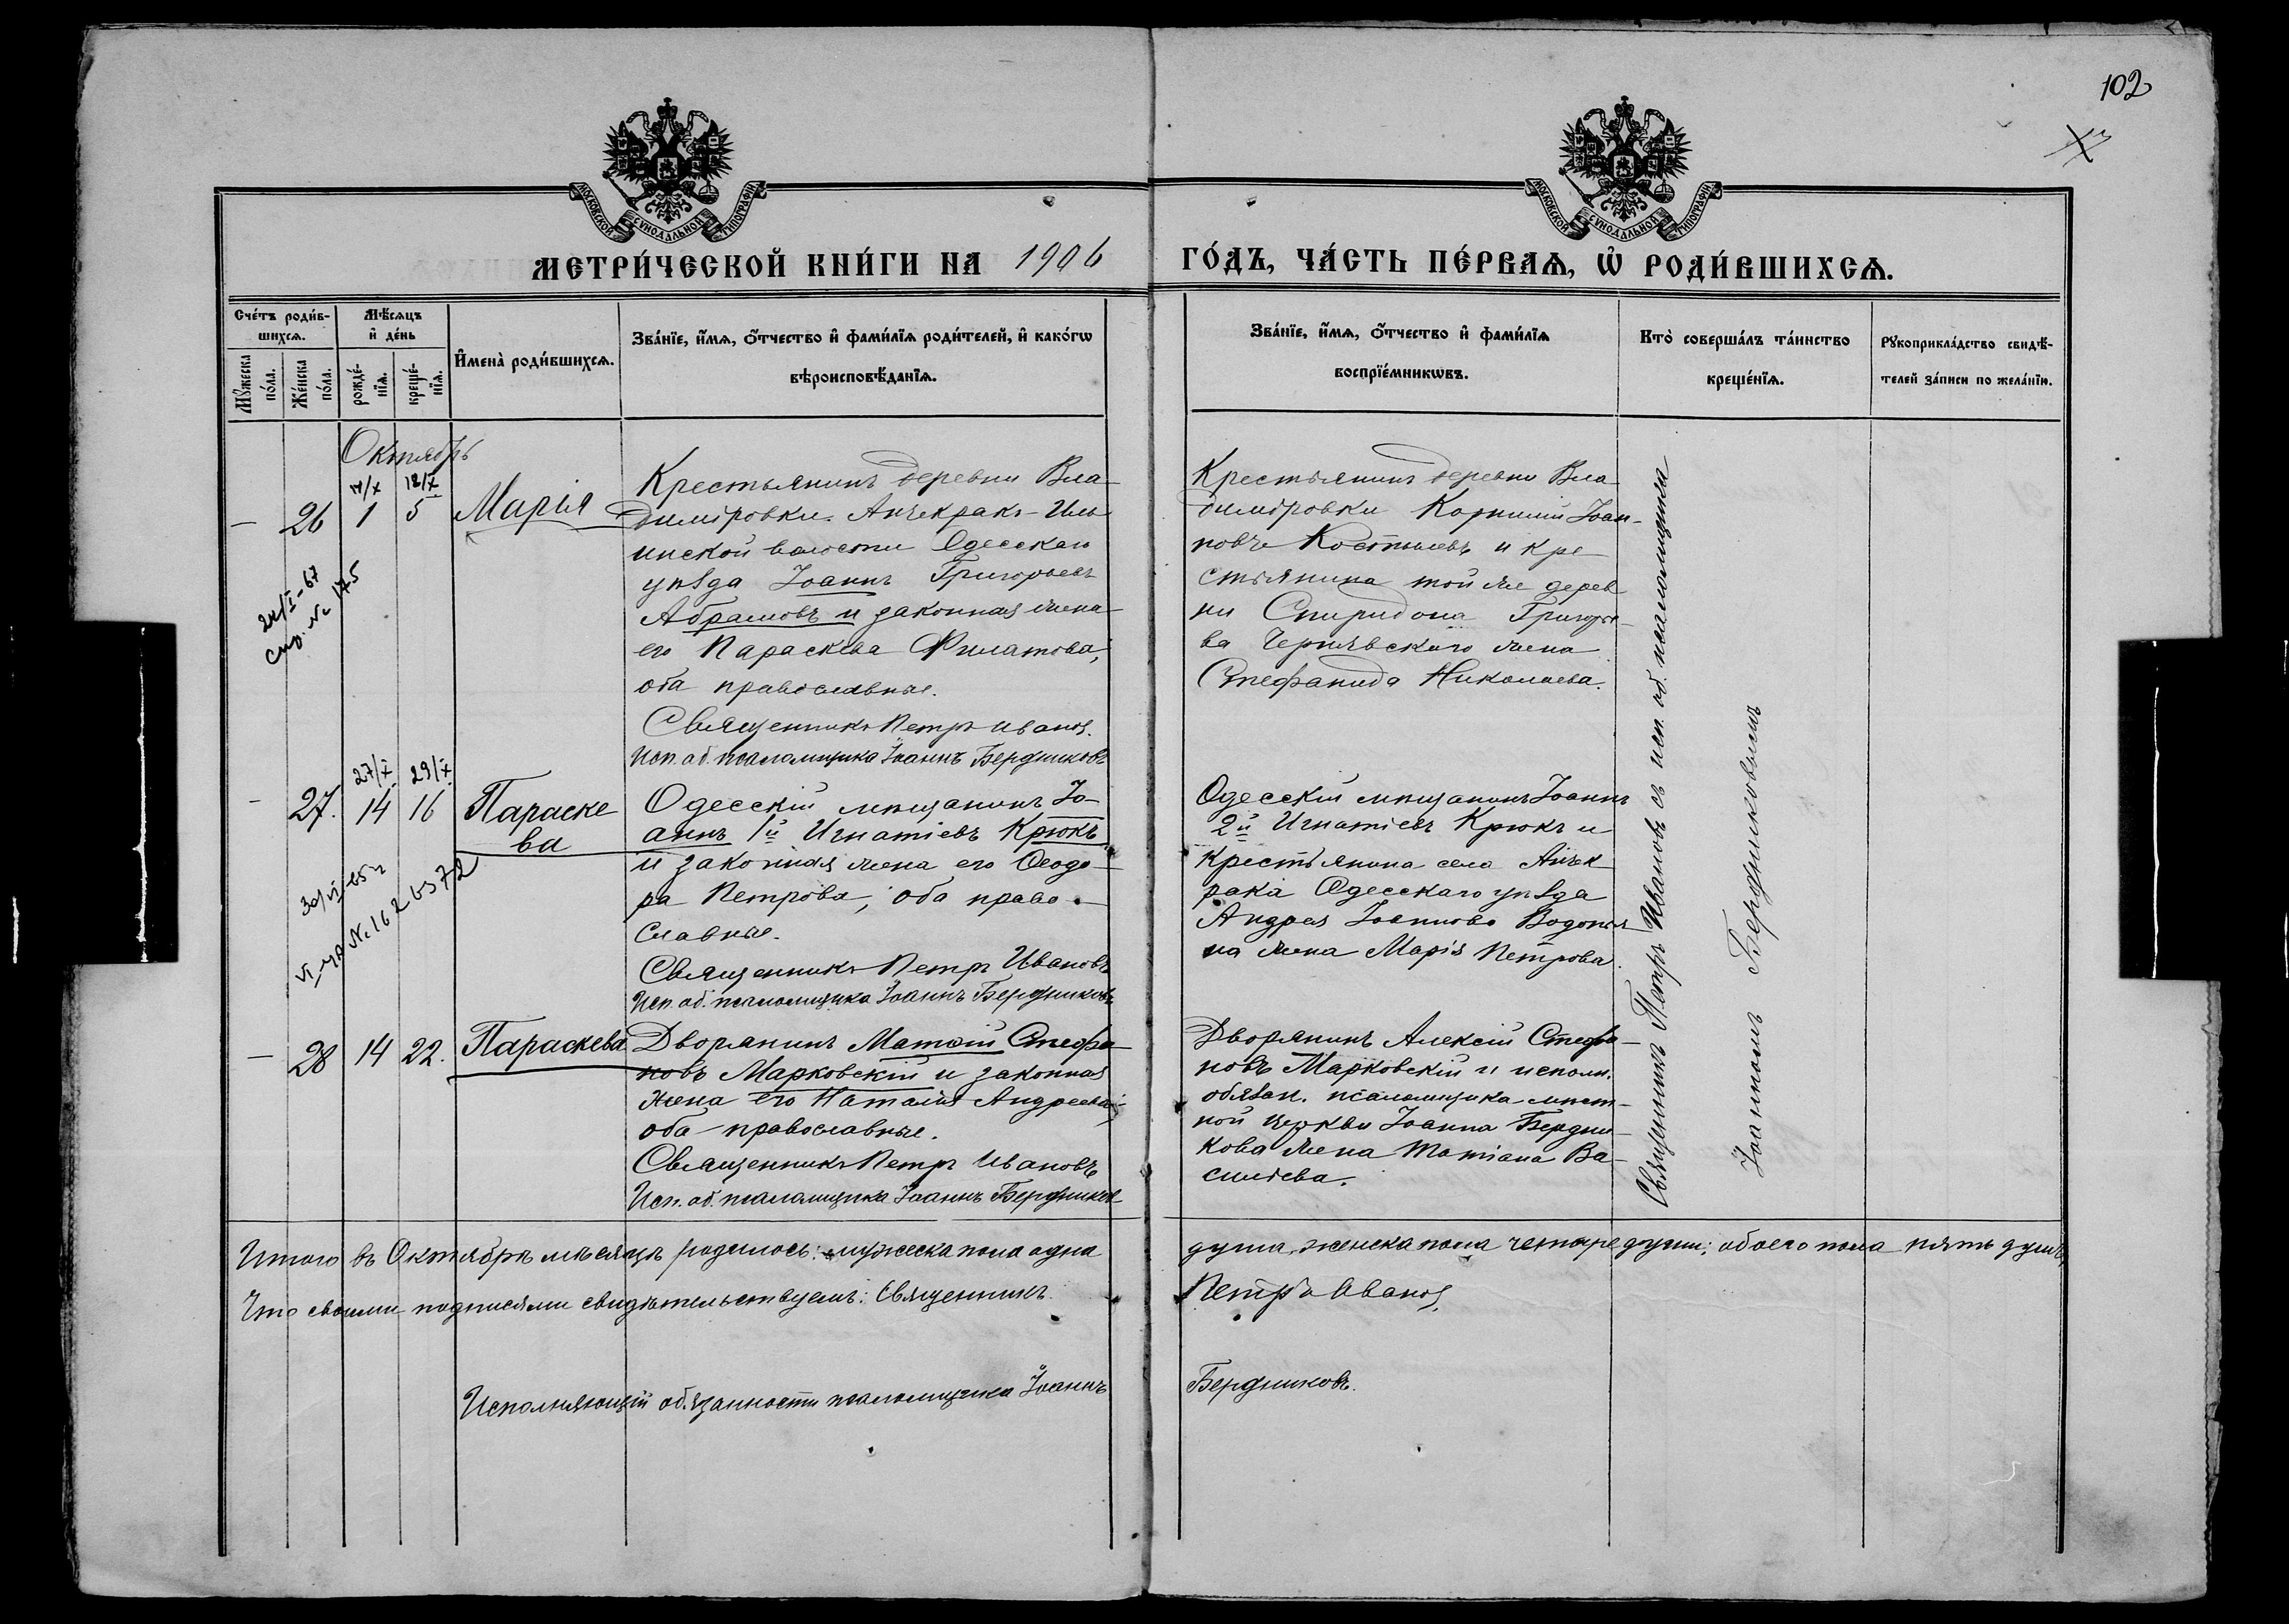 102
МОСКОВСКОЙ СУНОДАЛЬНОЙ ТИПОГРАФІИ
МОСКОВСКОЙ СУНОДАЛЬНОЙ ТИПОГРАФІИ
МЕТРИ́ЧЕСКОЙ КНИ́ГИ НА 1906
ГО́ДЪ, ЧА́СТЬ ПЕ́РВАѦ, Ѡ҆ РОДИ́ВШИХСѦ.
Сче́тъ роди́в-
шихсѧ.
Мꙋ́жеска по́ла.
Же́нска по́ла.
Мѣ́сѧцъ
и҆ де́нь
рожде́-
нїѧ.
креще́-
нїѧ.
И҆мена̀ роди́вшихсѧ.
Зва́нїе, и҆́мѧ, ѻ҆́тчество и҆ фами́лїѧ роди́телей, и҆ како́гѡ
вѣроисповѣ́данїѧ.
Зва́нїе, и҆́мѧ, ѻ҆́тчество и҆ фами́лїѧ
воспрїе́мникѡвъ.
Кто̀ соверша́лъ та́инство
креще́нїѧ.
Рꙋкоприкла́дство свидѣ́-
телей за́писи по жела́нїю.
Октябрь
14/X 18/X
— 26 1 5 Марія
Крестьянинъ деревни Вла-
димiровки Анчекракъ-Иль-
инской волости Одесскаго
уѣзда Іоаннъ Григорьевъ
Абрамовъ и законная жена
его Параскева Филатова,
оба православные.
Священникъ Петръ Ивановъ.
Исп. об. псаломщика Іоаннъ Бердниковъ
Крестьянинъ деревни Вла-
димiровки Корнилій Іоан-
новъ Костылевъ и кре-
стьянина той же дерев-
ни Спиридона Григорье-
ва Чернявскаго жена
Стефанида Николаева.
24/I-67
спр. № 175
27/X 29/X
— 27. 14 16 Параске
ва
Одесскій мѣщанинъ Іо-
аннъ 1й Игнатіевъ Крюкъ
и законная жена его Ѳеодо-
ра Петрова, оба право-
славные.
Священникъ Петръ Ивановъ
Исп. об. псаломщика Іоаннъ Бердниковъ
Одесскій мѣщанинъ Іоаннъ
2й Игнатіевъ Крюкъ и
крестьянина села Анчек-
рака Одесскаго уѣзда
Андрея Іоаннова Водопья-
на жена Марія Петрова.
30/VI-65 г
№ 1626372
— 28 14 22. Параскева
Дворянинъ Матѳій Стефа-
новъ Марковскій и законная
жена его Наталія Андреева;
оба православные.
Священникъ Петръ Ивановъ
Исп. об. псаломщика Іоаннъ Бердниковъ
Дворянинъ Алексій Стефа-
новъ Марковскій и исполн.
обязан. псаломщика мѣст-
ной церкви Іоанна Бердни-
кова жена Татіана Ва-
силіева.
Священникъ Петръ Ивановъ съ исп. об. псаломщика
Іоанномъ Бердниковымъ
Итого въ Октябрѣ мѣсяцѣ родилось: мужеска пола одна
душа, женска пола четыре души; обоего пола пять душъ,
Что своими подписями свидѣтельствуемъ: Священникъ
Петръ Ивановъ
Исполняющій обязанности псаломщика Іоаннъ
Бердниковъ.